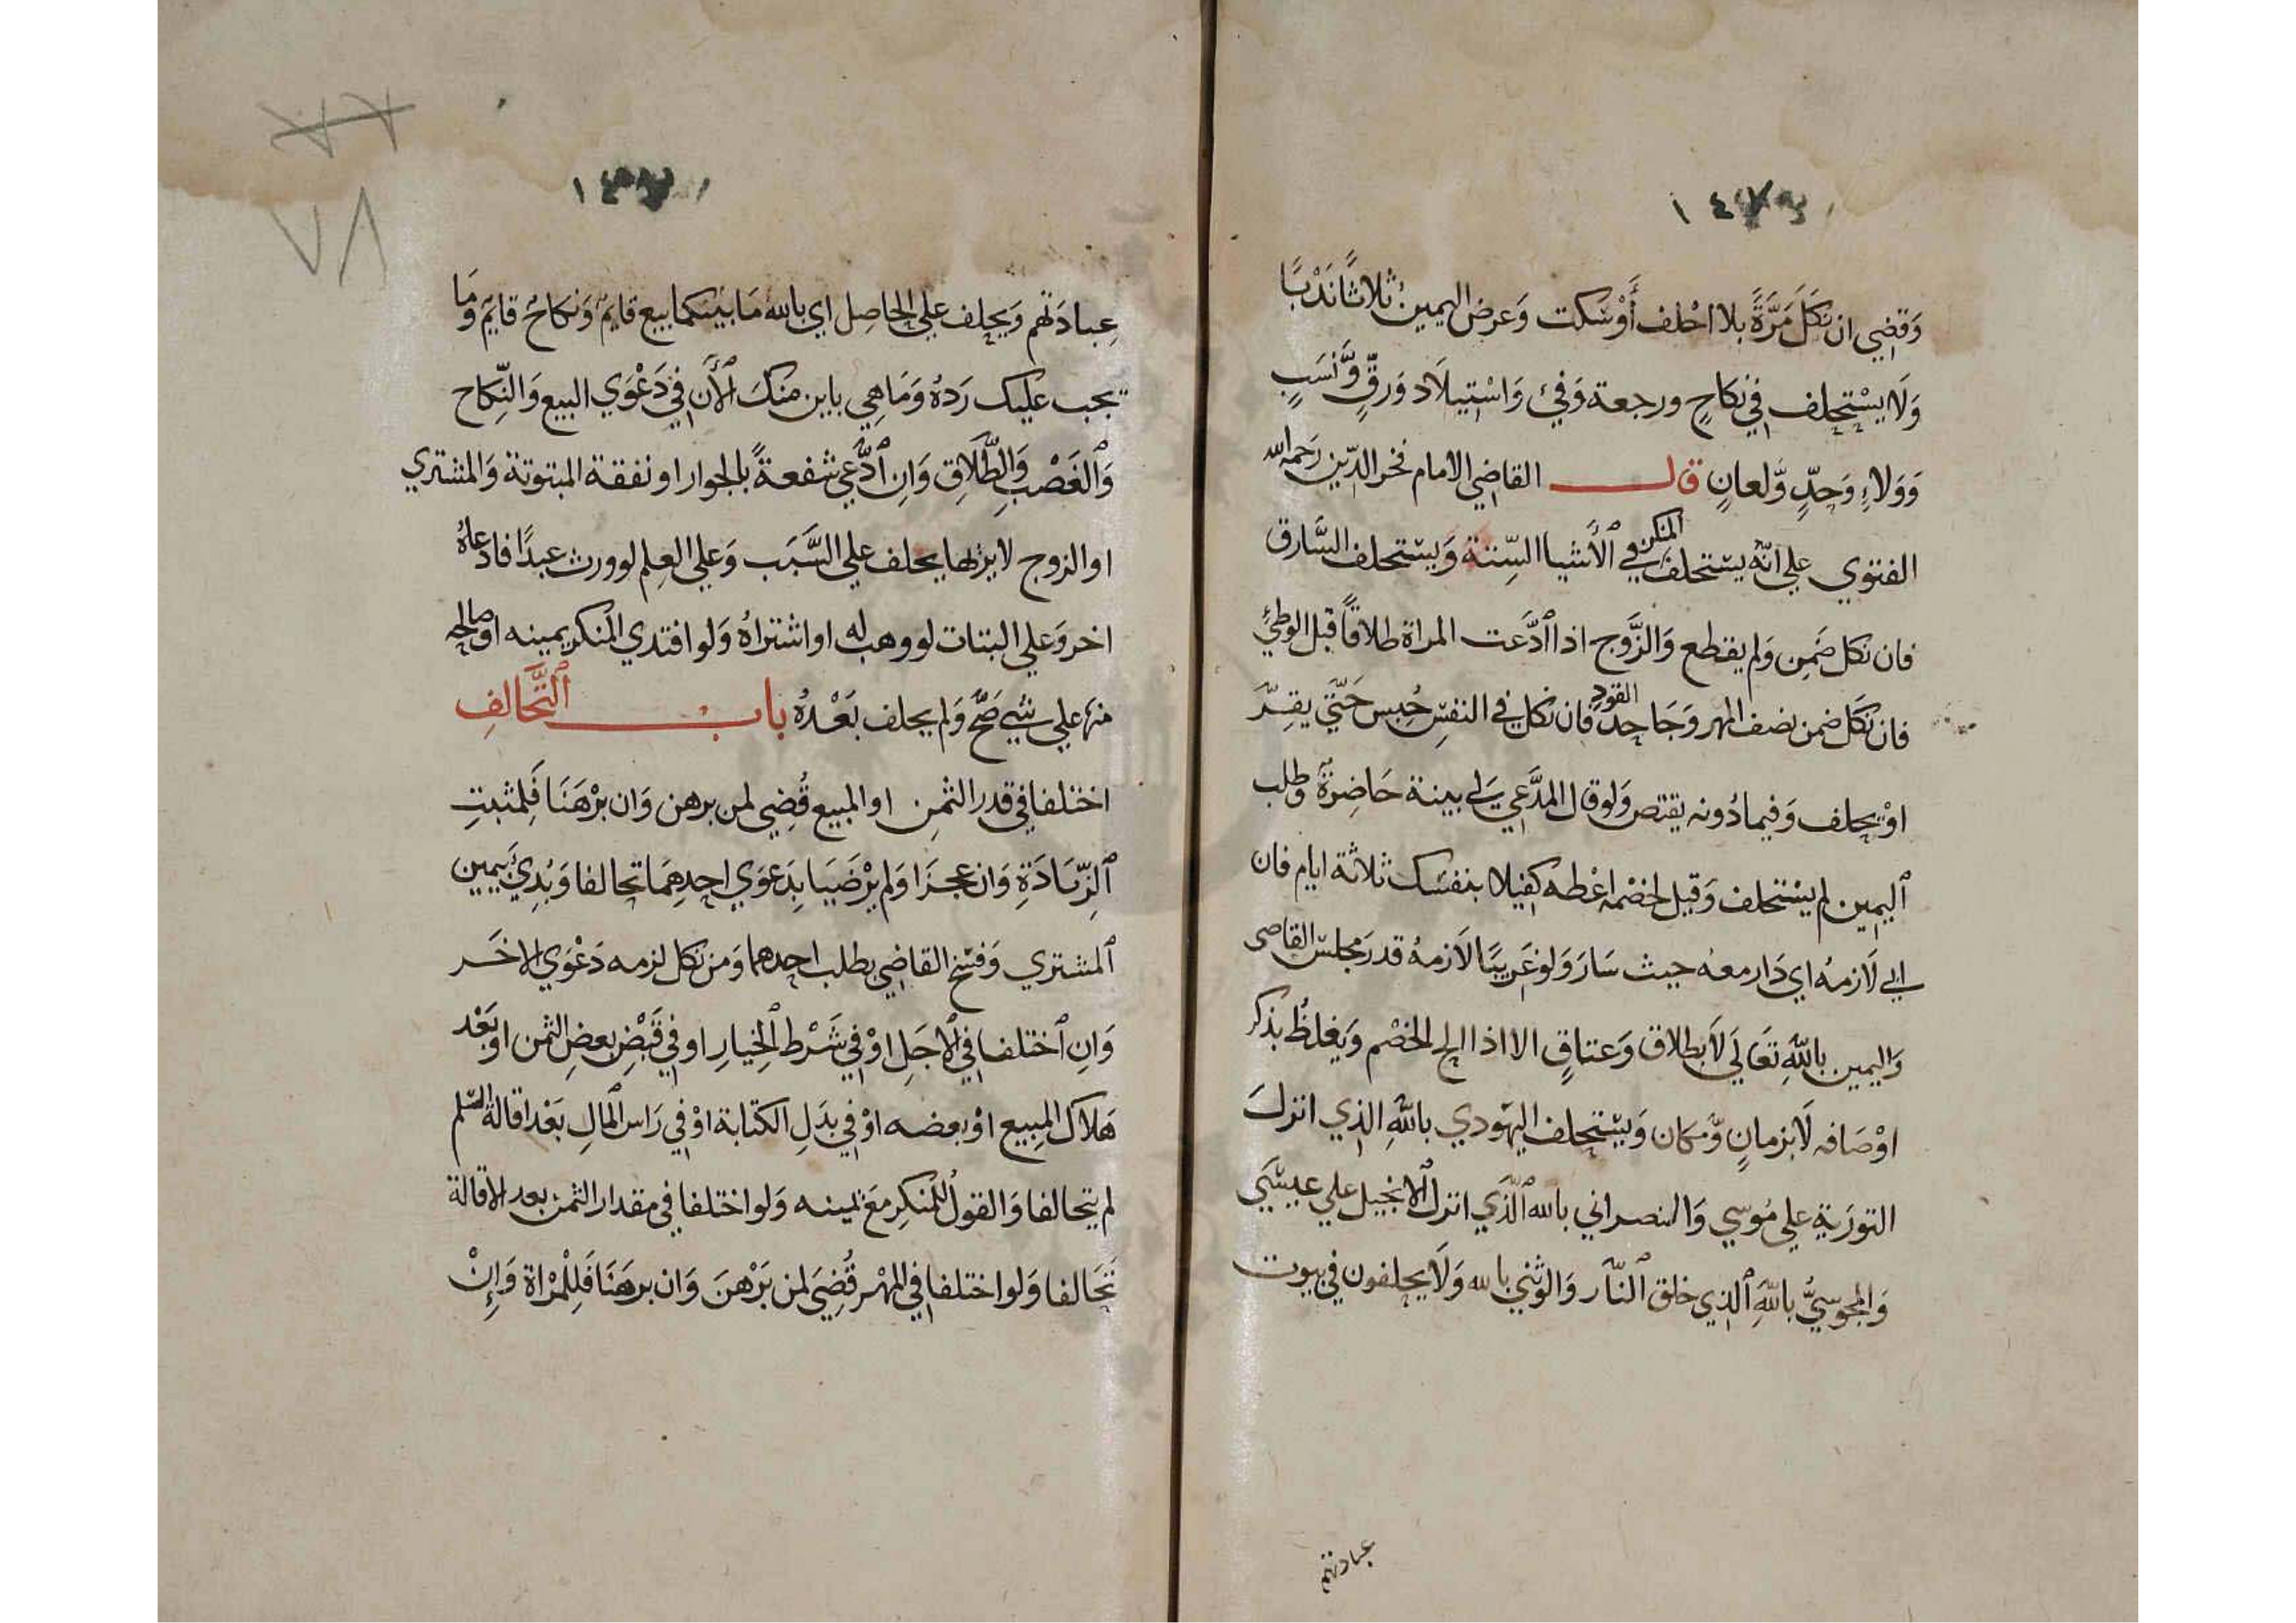 وَقضِي ان نكَلَ مَرَّةً بلا احْلف أَوْ سَكت وَعرض اليمين ثلاثًا نَدْبًا
وَلَا يسْتحلف في نكاحٍ ورجعة وَفئ وَاسْتيلَاد وَرقٍّ وَّنسَبٍ
وَوَلاءٍ وَحدٍّ وَّلعانٍ قال القاضي الامام فخر الدّين رَحمَه الله
الفتوي علي انّه يستحلف المنكر في ٱلأشيا السِّتة وَيستحلف السَّارق
فان نكل ضَمِن وَلم يقطع وَالزَّوج اذا ٱدَّعت المراة طلاقًا قبل الوطئِ
فان نكَل ضمن نصف المهر وَجَاحِد القود فان نكل في النفسِ حُبِس حَتّي يقِرَّ
اوْ يحلف وَفيما دُونه يقتص وَلو قال المدَّعي لي بينة حَاضِرَةٌ وطلب
ٱليمِين لم يسْتحلف وَقيل لخصْمه اعْطه كفيلا بنفسك ثلاثة ايام فان
ابي لَازمهُ اي دَار معهُ حيث سَارَ وَلوْ غَرِيبًا لَازمهُ قدر مَجلس القاضى
وَاليمين باللَّهِ تَعَالَي لَا بطلاق وَعتاقٍ الا اذا الح الخصْم وَيغلظُ بذكر
اوْصَافه لَا بزمانٍ وَّمكان وَيسْتحلف اليهودي باللَّهِ الذِي انزلَ
التورَية علي مُوسي وَالنصراني بالله ٱلَّذي انزل ٱلانجيل علي عيسَي
وَالمجوسِيُّ باللَّهِ ٱلذِي خلق ٱلنَّار وَالوثني بالله وَلَا يحلفون في بيوت
عبادتهم
عِبادَتهم وَيحلف علي الحَاصِل اي بالله مَا بَيْنَكما بيع قايمٌ وَنكاحٌ قايمٌ وَمَا
يجب علَيك رَدهُ وَمَا هِي باين منكَ ٱلأن في دَعْوَي البيع وَالنِّكاح
وَٱلغَصْب وَٱلطَّلَاقِ وَانِ ٱدَّعي شفعةً بالجوار او نفقة المبتوتة وَالمشتري
او الزوج لا يرَاها يحلف علي السَّبَب وَعلي العِلم لو ورث عبدًا فادعاهُ
اخر وَعلي البتات لو وهب له او اشتراهُ وَلو افتدي المنكر يمينه او صَالحه
منها علي شي صَحَّ وَلم يحلف بَعْدهُ باب ٱلتَّحَالفِ
اختلفا في قدر الثمنِ او المبيع قُضِي لمن برهن وَان برْهَنَا فَلِمثبتِ
ٱلزِّيَادَةِ وَان عجزَا وَلم يرْضَيَا بِدَعوَي احدِهِمَا تحالفا وَبُدِئَ بيمين
ٱلمشتري وَفسَخ القاضِي بطلب احدهما وَمن نكل لزمه دَعْوَي الاخَر
وَانِ ٱختلفا في ٱلاجَلِ اوْ في شَرْط ٱلخِيارِ او في قَبْضِ بعضِ الثمن او بَعْد
هَلَاك المبِيع اوْ بعضه اوْ في بدَلِ الكتابة اوْ في رَاس ٱلمالِ بَعْد اقالة السّلم
لم يتحالفا وَالقولُ للمنكِر مَعَ يمينه وَلو اختلفا في مقدار الثمن بعد الاقالة
تَحَالفا وَلو اختلفا في المهْر قُضِيَ لمن بَرْهنَ وَان برهنَا فَلِلْمرْاة وَإِنْ
٧٨